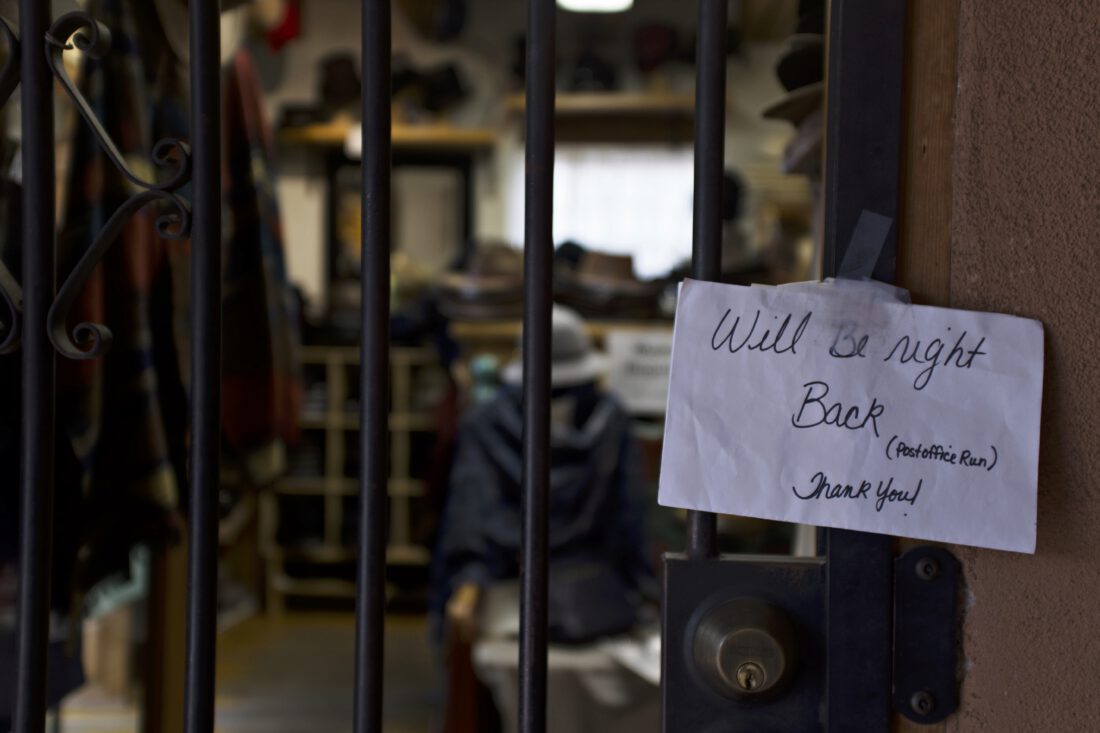 Will Be right
Back
(Post office Run)
Thank You!